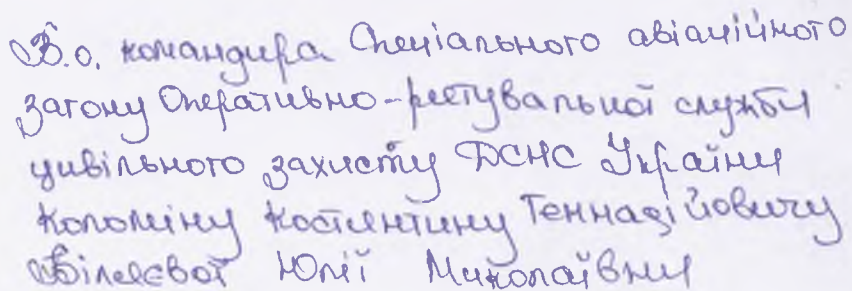 В.о. командира Спеціального авіаційного
загону Оперативно-рятувальної служби
цивільного захисту ДСНС України
Коломіну Костянтину Геннадійовичу
Біляєвої Юлії Миколаївни